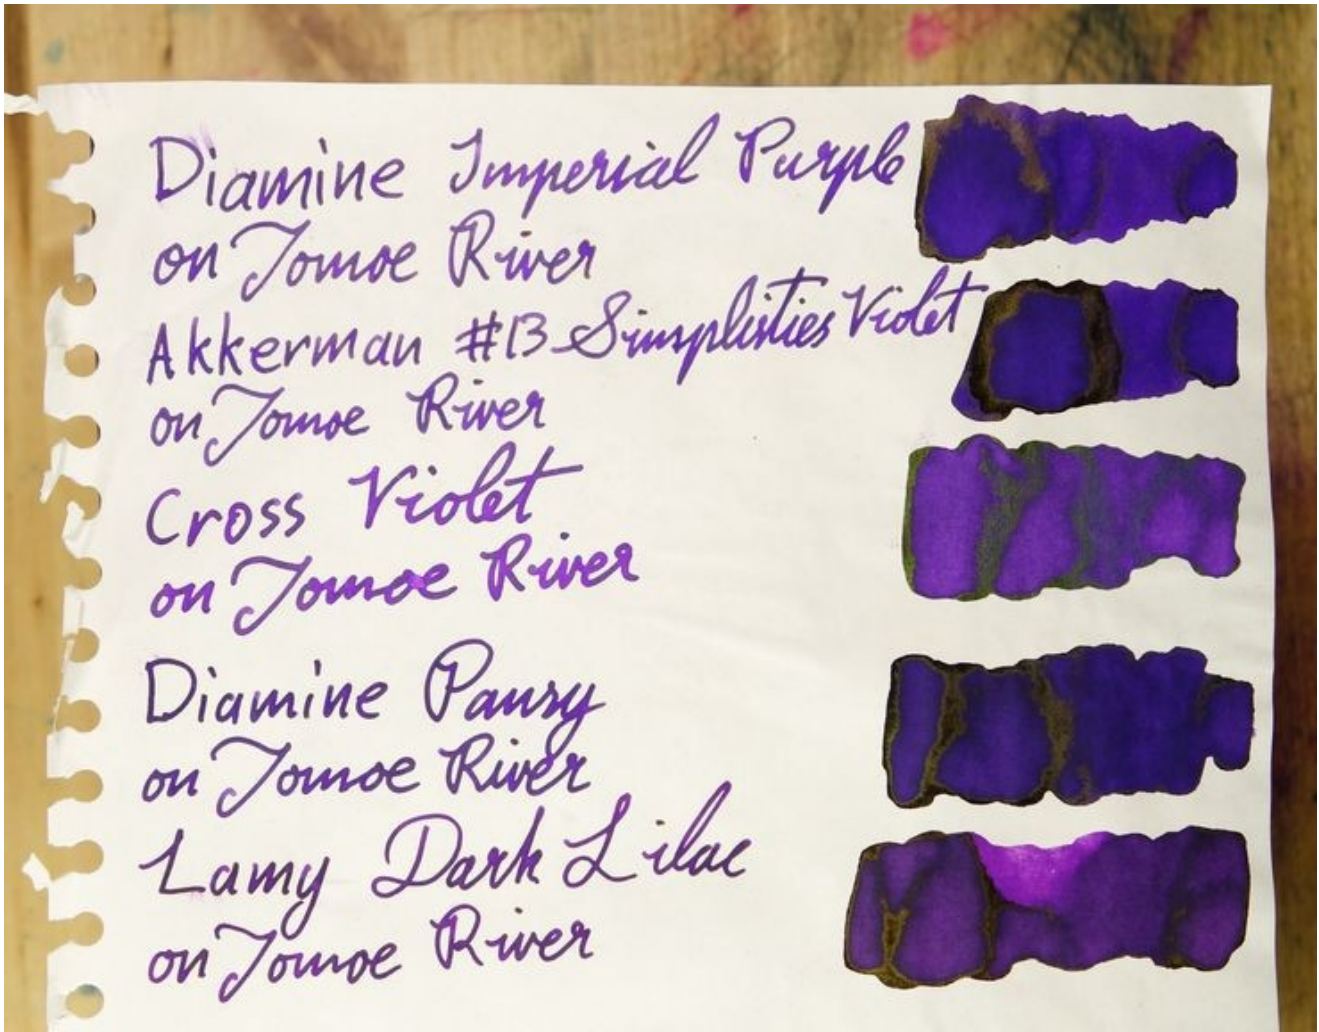 Diamine Imperial Purple
on Tomoe River
Akkerman #13 Simplisties Violet
on Tomoe River
Cross Violet
on Tomoe River
Diamine Pansy
on Tomoe River
Lamy Dark Lilac
on Tomoe River